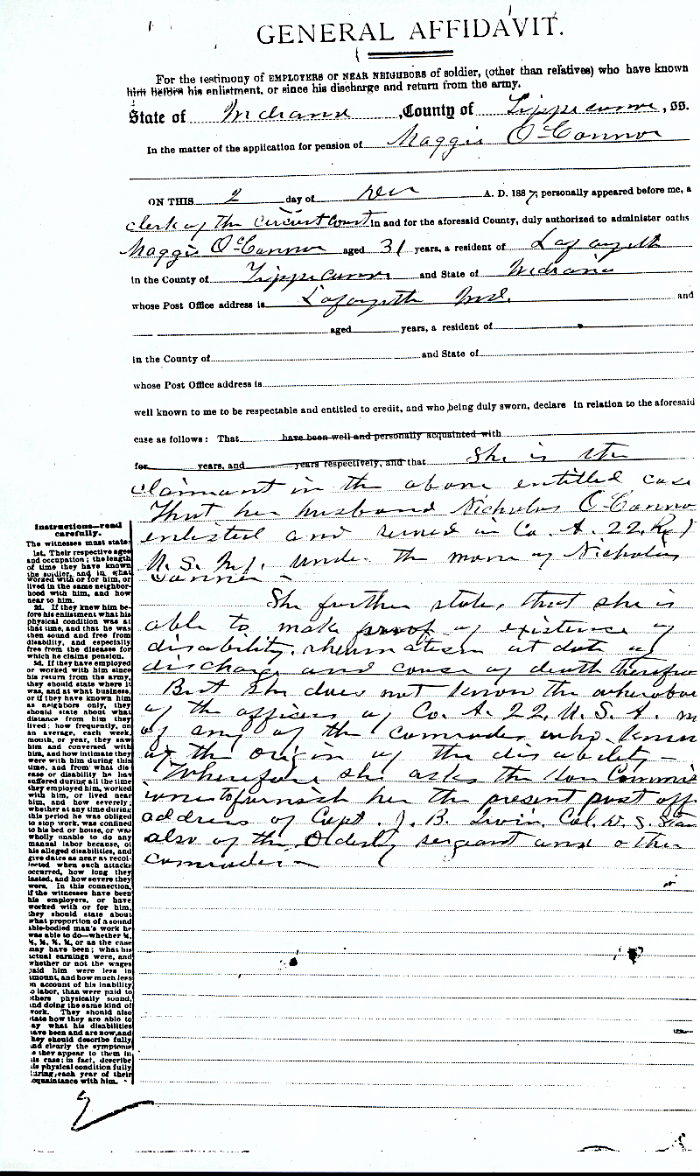 GENERAL AFFIDAVIT.
For the testimony of EMPLOYERS OR NEAR NEIGHBORS of soldier, (other than relatives) who have known
him before his enlistment, or since his discharge and return from the army.
State of Indiana, County of Tippecanoe, SS.
In the matter of the application for pension of Maggie O'Connor
ON THIS 2 day of A. D. 1887, personally appeared before me, a
clerk of the circuit court in and for the aforesaid County, duly authorized to administer oaths
Maggie O'Connor aged 31 years, a resident of Lafayette
in the County of Tippecanoe and State of Indiana
whose Post Office address is Lafayette Ind. and
aged years, a resident of
in the County of and State of
whose Post Office address is
well known to me to be respectable and entitled to credit, and who, being duly sworn, declare in relation to the aforesaid
case as follows: That have been well and personally acquainted with
for years, and years respectively, and that She is the
claimant in the above entitled case
That her husband Nicholas O'Conno
enlisted and served in Co. A. 22. Reg
U. S. under the name of Nicholas
Conner
She further states, that she is
able to make proof of existence of
disability, rheumatism at date of
discharge and cause of death therefro
But she does not know the wherabou
of the officers of Co. A. 22. U. S. A.
of any of the comrades who know
of the origin of the disability
Wherefore she asks the Hon Commis
to furnish her the present post off
address of Capt. J. B. Irvin, Col. D. S. Stan
also of the Orderly sergeant and other
comrades
Instructions—read
carefully.
The witnesses must state:
1st. Their respective ages
and occupation; the length
of time they have known
the soldier, and in what
worked with or for him, or
lived in the same neighbor-
hood with him, and how
near to him.
2d. If they knew him be-
fore his enlistment what his
physical condition was at
that time, and that he was
then sound and free from
disability, and especially
free from the diseases for
which he claims pension.
3d. If they have employed
or worked with him since
his return from the army,
they should state where it
was, and at what business,
or if they have known him
as neighbors only, they
should state about what
distance from him they
lived; how frequently, on
an average, each week,
month, or year, they saw
him and conversed with
him, and how intimate they
were with him during this
time, and from what dis-
ease or disability he has
suffered during all the time
they employed him, worked
with him, or lived near
him, and how severely;
whether at any time during
this period he was obliged
to stop work, was confined
to his bed or house, or was
wholly unable to do any
manual labor because, of
his alleged disabilities, and
give dates as near as recol-
lected when each attacks
occurred, how long they
lasted, and how severe they
were. In this connection,
if the witnesses have been
his employers, or have
worked with or for him,
they should state about
what proportion of a sound
able-bodied man's work he
was able to do—whether ¾,
or as the case
may have been; what his
actual earnings were, and
whether or not the wages
paid him were less in
amount, and how much less
on account of his inability
to labor, than were paid to
others physically sound,
and doing the same kind of
work. They should also
state how they are able to
say what his disabilities
have been and are now, and
they should describe fully
and clearly the symptoms
as they appear to them in
his case; in fact, describe
his physical condition fully
during each year of their
acquaintance with him.